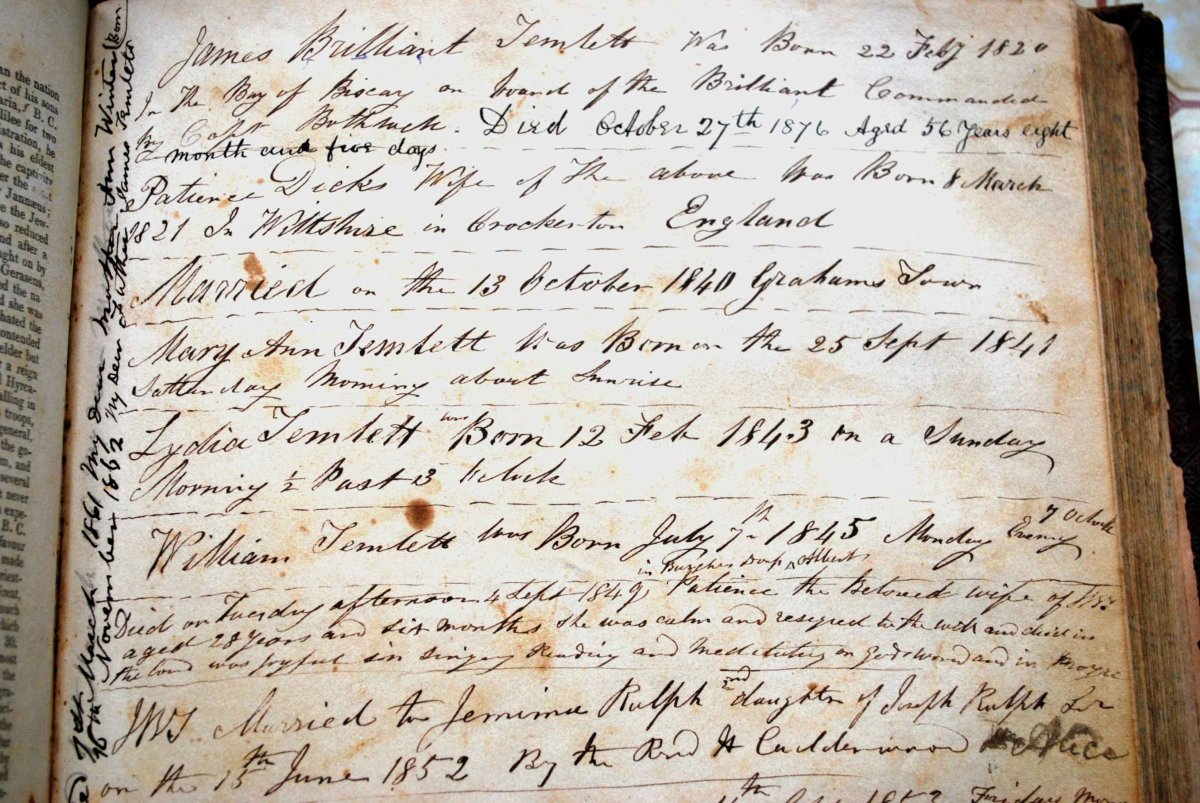 James Brilliant Temlett Was Born 22 Feby 1820
In The Bay of Biscay on board of the Brilliant Commanded
by Capt Bothwick. Died October 27th 1876 Aged 56 Years eight
month and five days
Patience Dicks Wife of The above Was Born 8 March
1821 In Wiltshire in Crockerton England
Married on the 13 October 1840 Grahams Town
Mary Ann Temlett Was Born on the 25 Sept 1841
Satterday Morning about Sunrise
Lydia Temlett was Born 12 Feb 1843 on a Sunday
Morning ½ Past 5 Oclock
William Temlett was Born July 7th 1845 Monday Evening 7 Oclock
in Burghers dorp Albert
Died on Tuesday afternoon 4 Sept 1849 Patience the Beloved wife of JBT
aged 28 Years and six months she was calm and resigned to the will and died in
the Lord was joyful in singing Reading and Meditating on Gods word and in Prayer
JBT Married to Jemima Ralph 2nd daughter of Joseph Ralph Sr
on the 15th June 1852 By the Revd H Calderwood Alice
1852 Friday
March 1861 My Dear Mother Ann Winters Born
November 1862 My Dear Father James Temlett
an the nation
ct of his sons
B. C.
lilee for two
istration, he
his eldest
the captivity
Jannæus;
e the Jew-
so reduced
nd after a
ught on by
Gerasens,
ed the na-
d she was
hated the
contended
elder but
a reign
Hyrca-
alling in
troops,
general,
the go-
m, and
several
never
expe-
B. C.
favour
made
riest-
Great,
much
which
30.
most
the